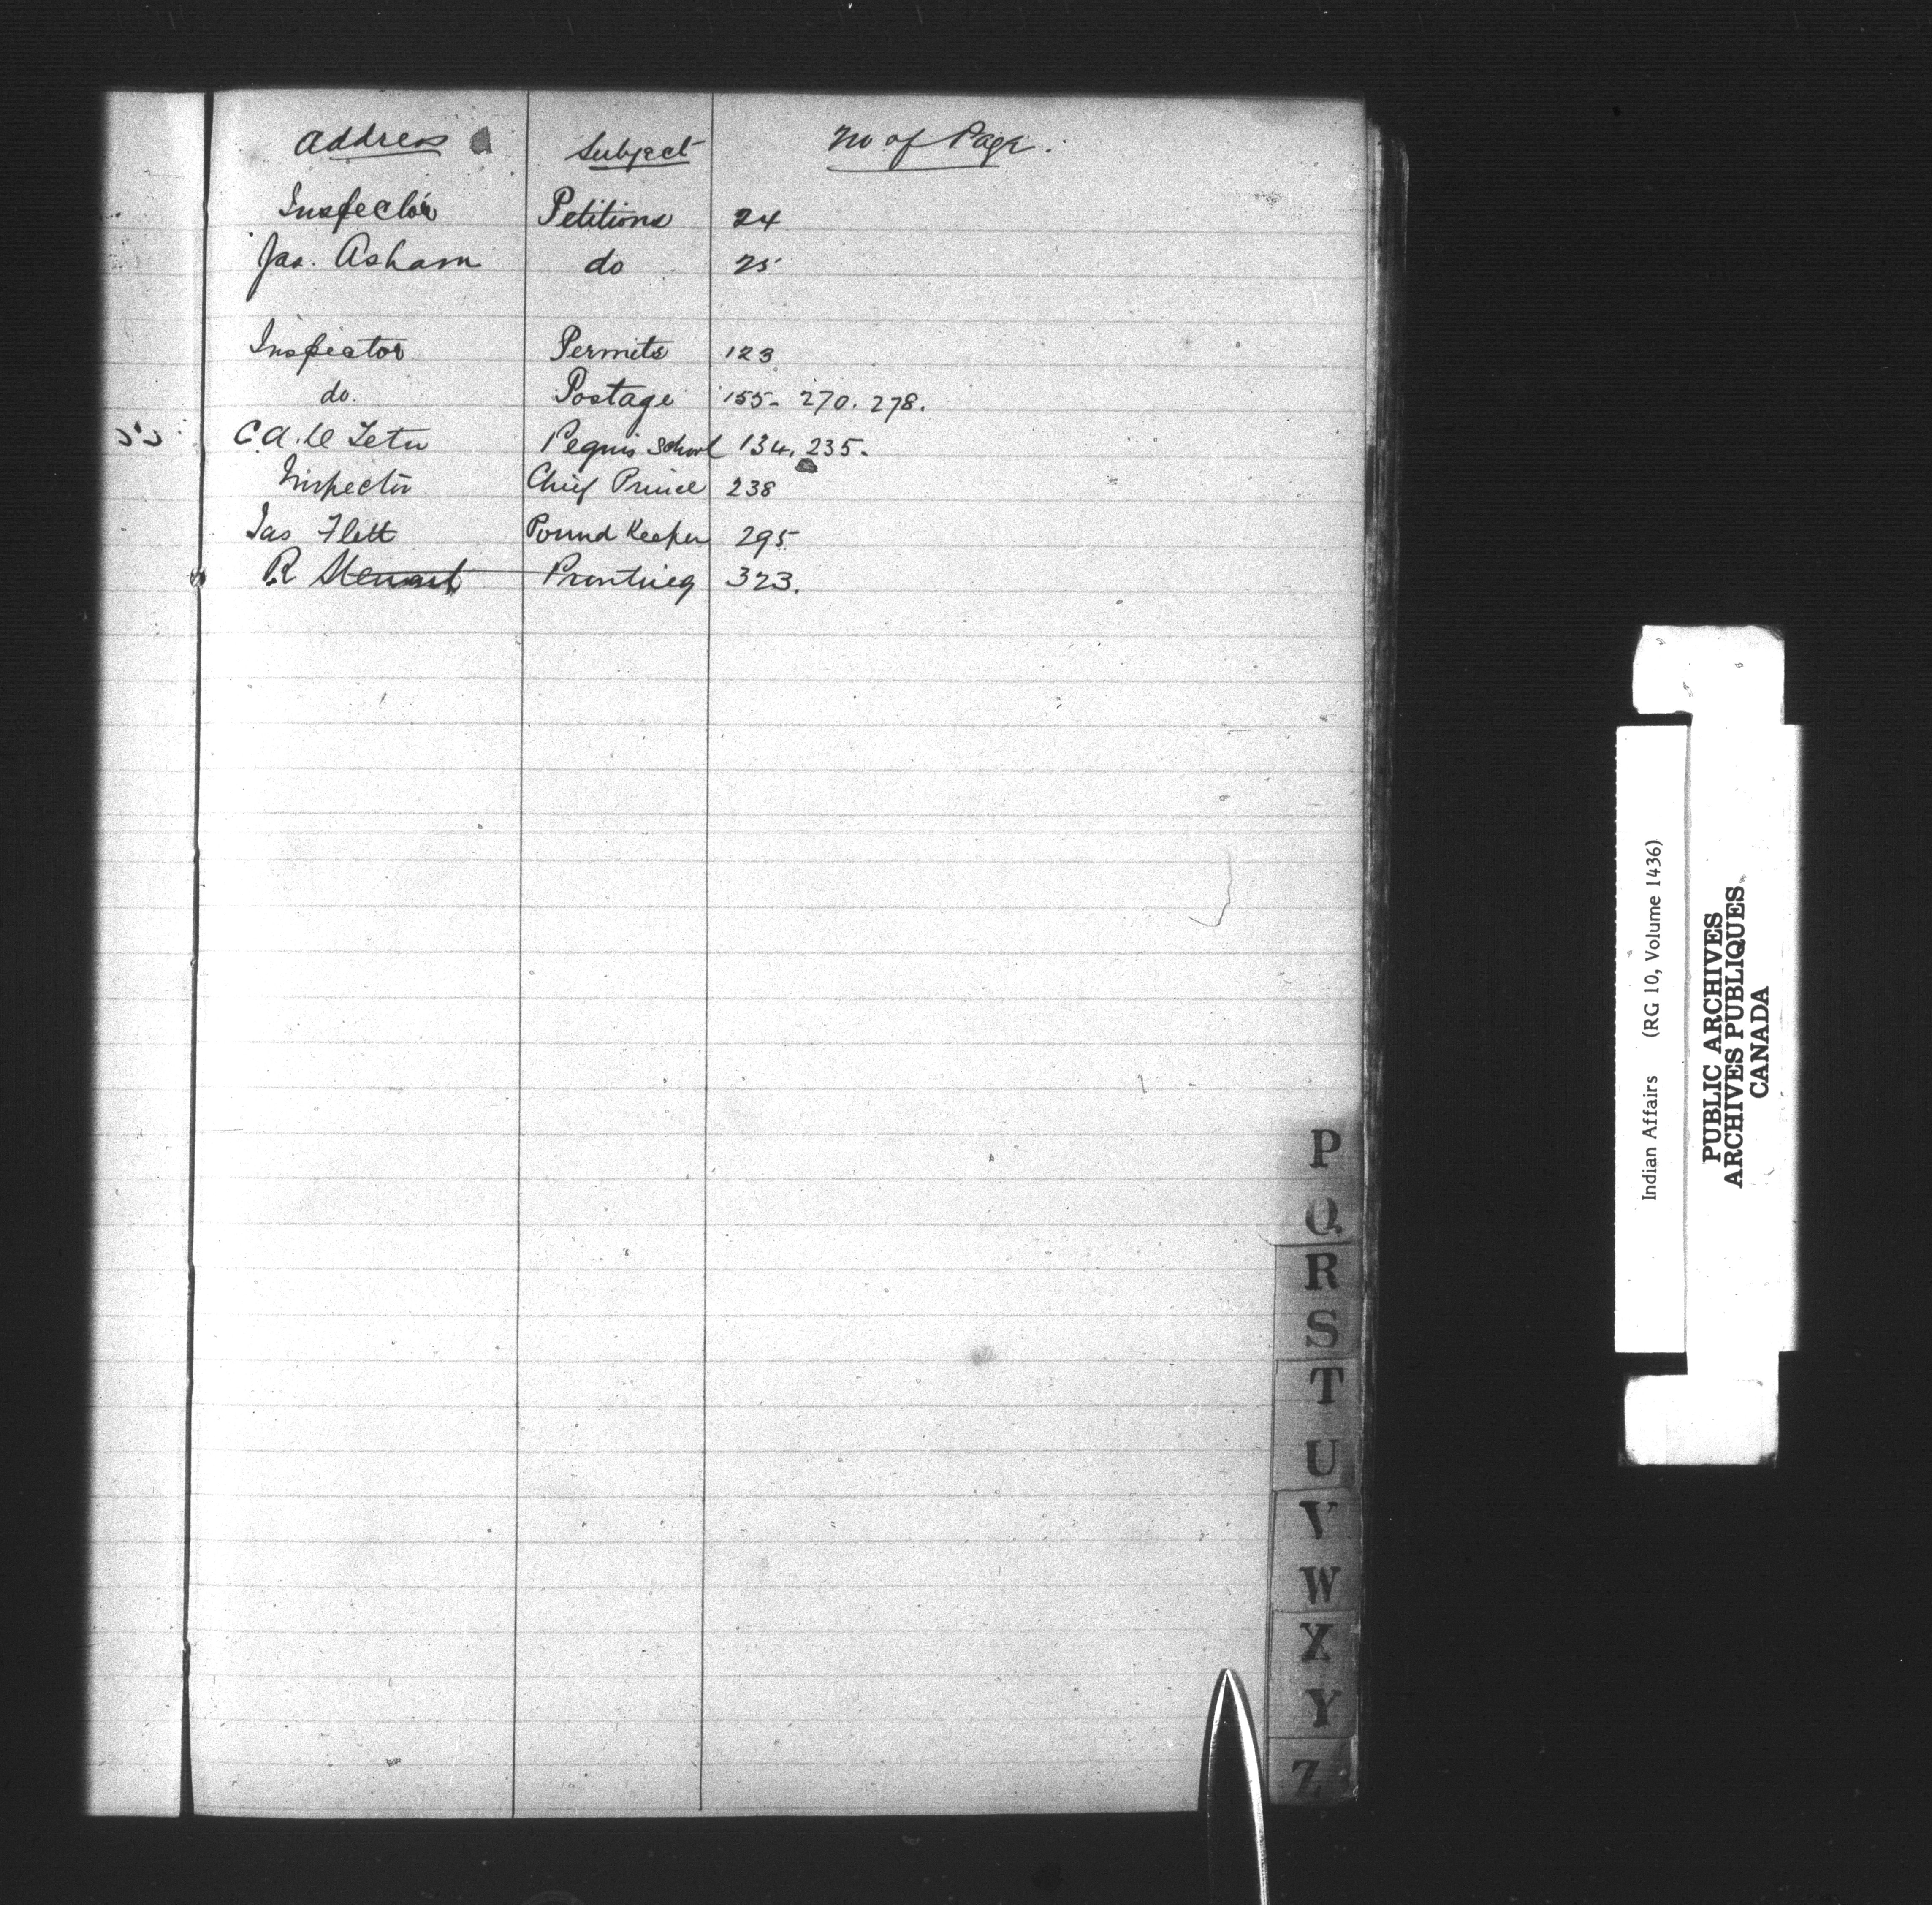 Address Subject No of Page.
Inspector Petitions 24
Jas. Asham do 25
Inspector Permits 123
do. Postage 155- 270. 278.
C.A. Tetu Peguis School 134. 235-
Inspector Chief Prince 238
Jas Flett Pound Keeper 295
R Stewart Printing 323.
P
Q
R
S
T
U
V
W
X
Y
Z
Indian Affairs (RG 10, Volume 1436)
PUBLIC ARCHIVES
ARCHIVES PUBLIQUES
CANADA